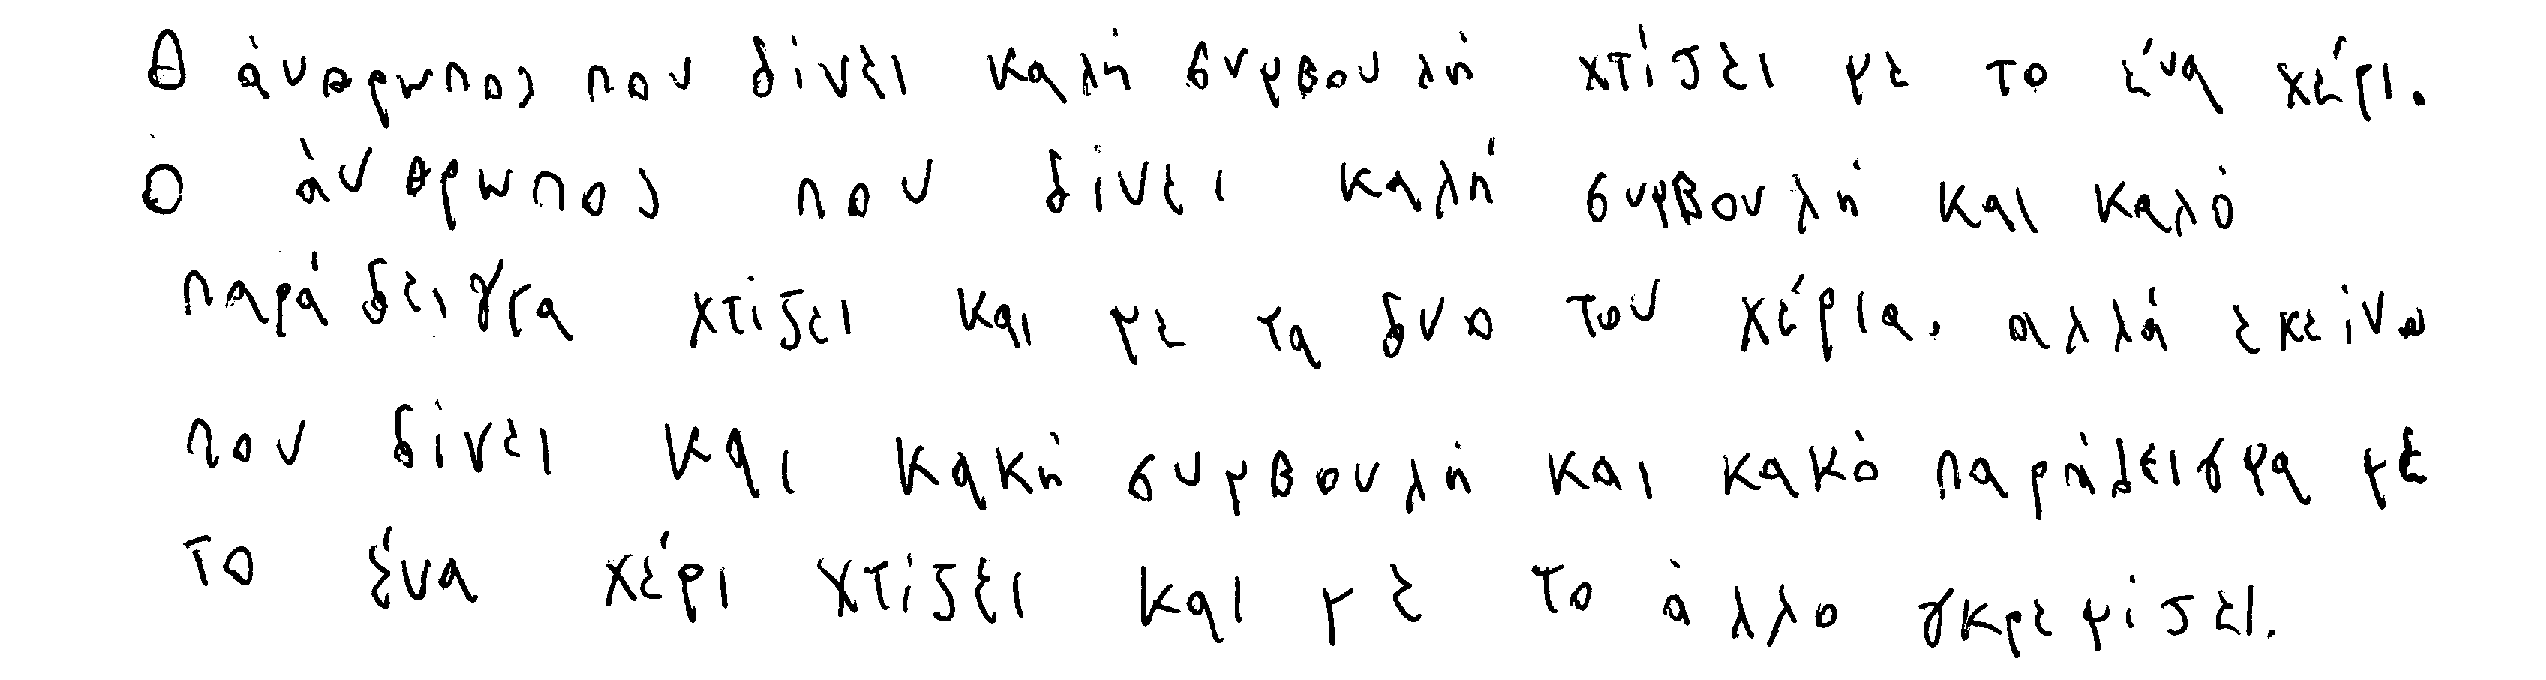 Ο άνθρωπος που δίνει καλή συμβουλή χτίζει με το ένα χέρι.
Ο άνθρωπος που δίνει καλή συμβουλή και καλό
παράδειγμα χτίζει και με τα δυο του χέρια. αλλά εκείνο
που δίνει και κακή συμβουλή και κακό παράδειγμα με
το ένα χέρι χτίζει και με το άλλο γκρεμίζει.